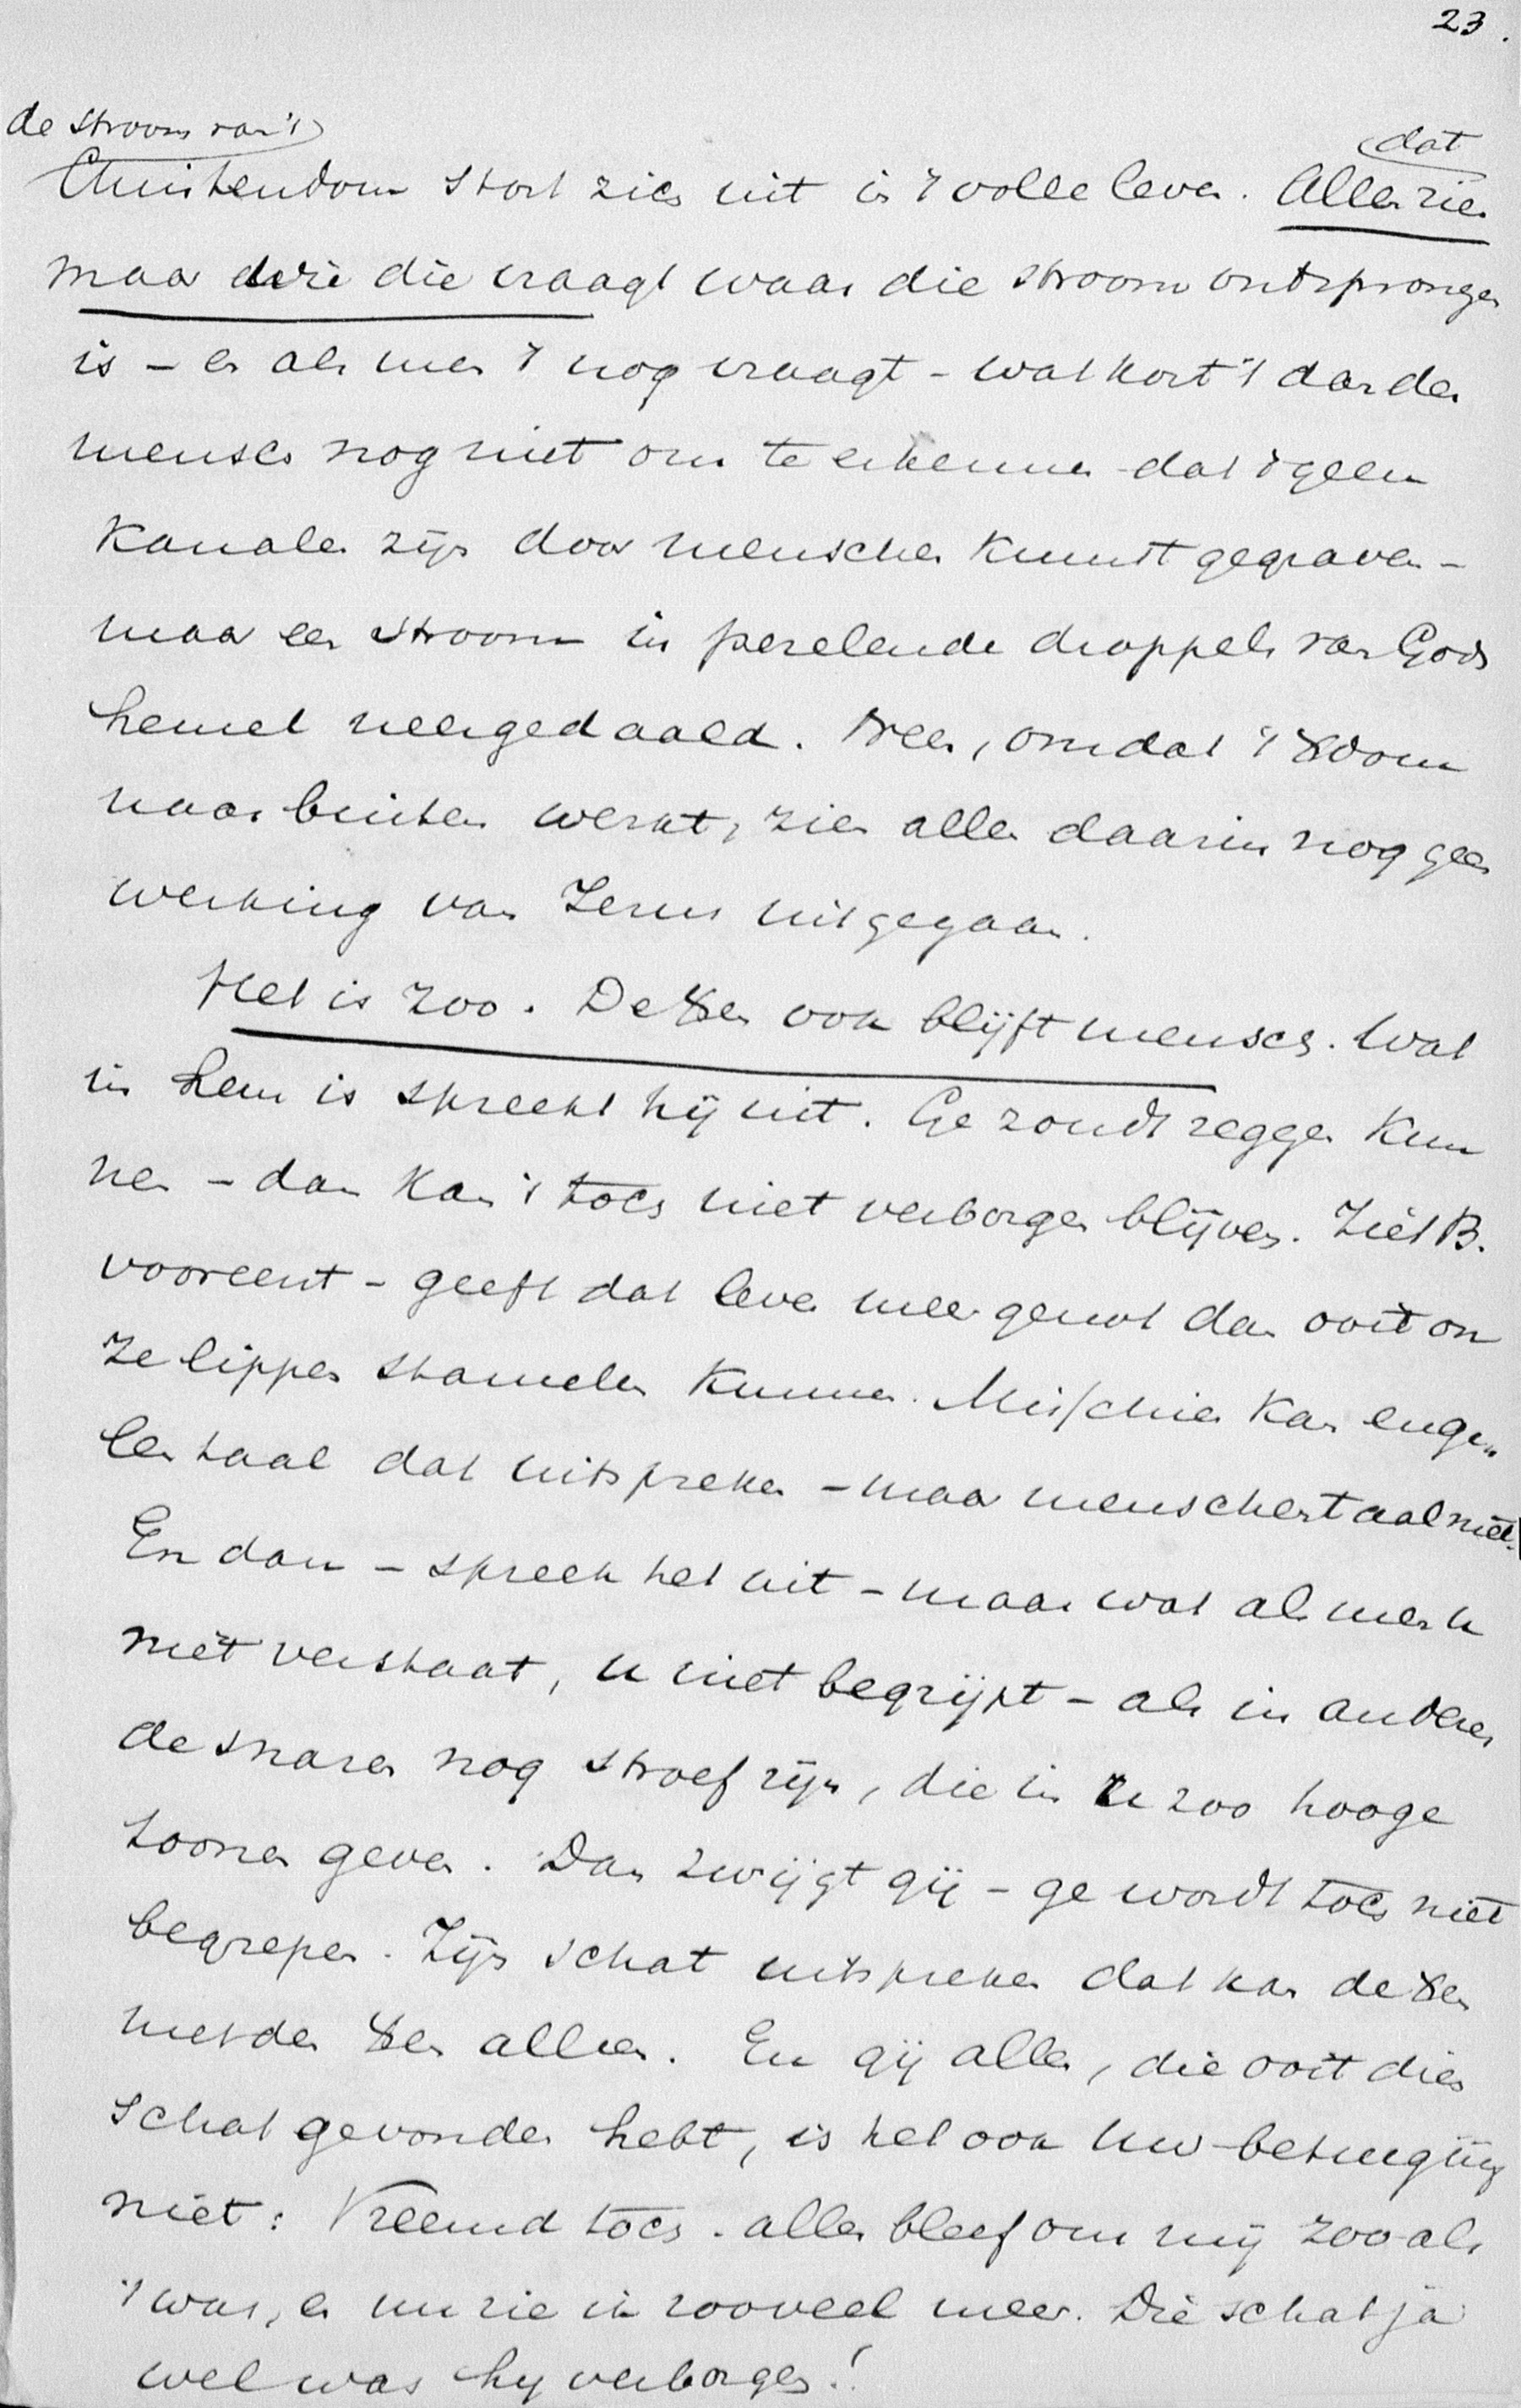 23.
de stroom van 't
dat
Christendom stort zich uit in 't volle leven. Allen zien
maar wie die vraagt waar die stroom ontsprongen
is – en als men 't nog vraagt – wat kost 't dan den
mensch nog niet om te erkennen dat 't geen
kanalen zijn door menschen kunst gegraven –
maar een stroom in perelende droppels van Gods
hemel neergedaald. Neen, omdat 't Xdom
naar buiten werkt, zien allen daarin nog geen
werking van Jezus uitgegaan.
Het is zoo. De Xen ook blijft mensch. Wat
in hem is spreekt hij uit. Ge zoudt zeggen kun
nen – dan kan 't toch niet verborgen blijven. Ziet B.
vooreerst – geeft dat leven meer genot dan ooit on
ze lippen stamelen kunnen. Misschien kan enge„
len taal dat uitspreken – maar menschentaal niet.
En dan – spreek het uit – maar wat als men u
niet verstaat, u niet begrijpt – als in anderen
de snaren nog stroef zijn, die in u zoo hooge
toonen geven. Dan zwijgt gij – ge wordt toch niet
begrepen. Zijn schat uitspreken dat kan de Xen
met den Xen alleen. En gij allen, die ooit dien
schat gevonden hebt, is het ook uw betuiging
niet: Vreemd toch. alles bleef om mij zooals
't was, en nu zie ik zooveel meer. Die schat ja
wel was hij verborgen!